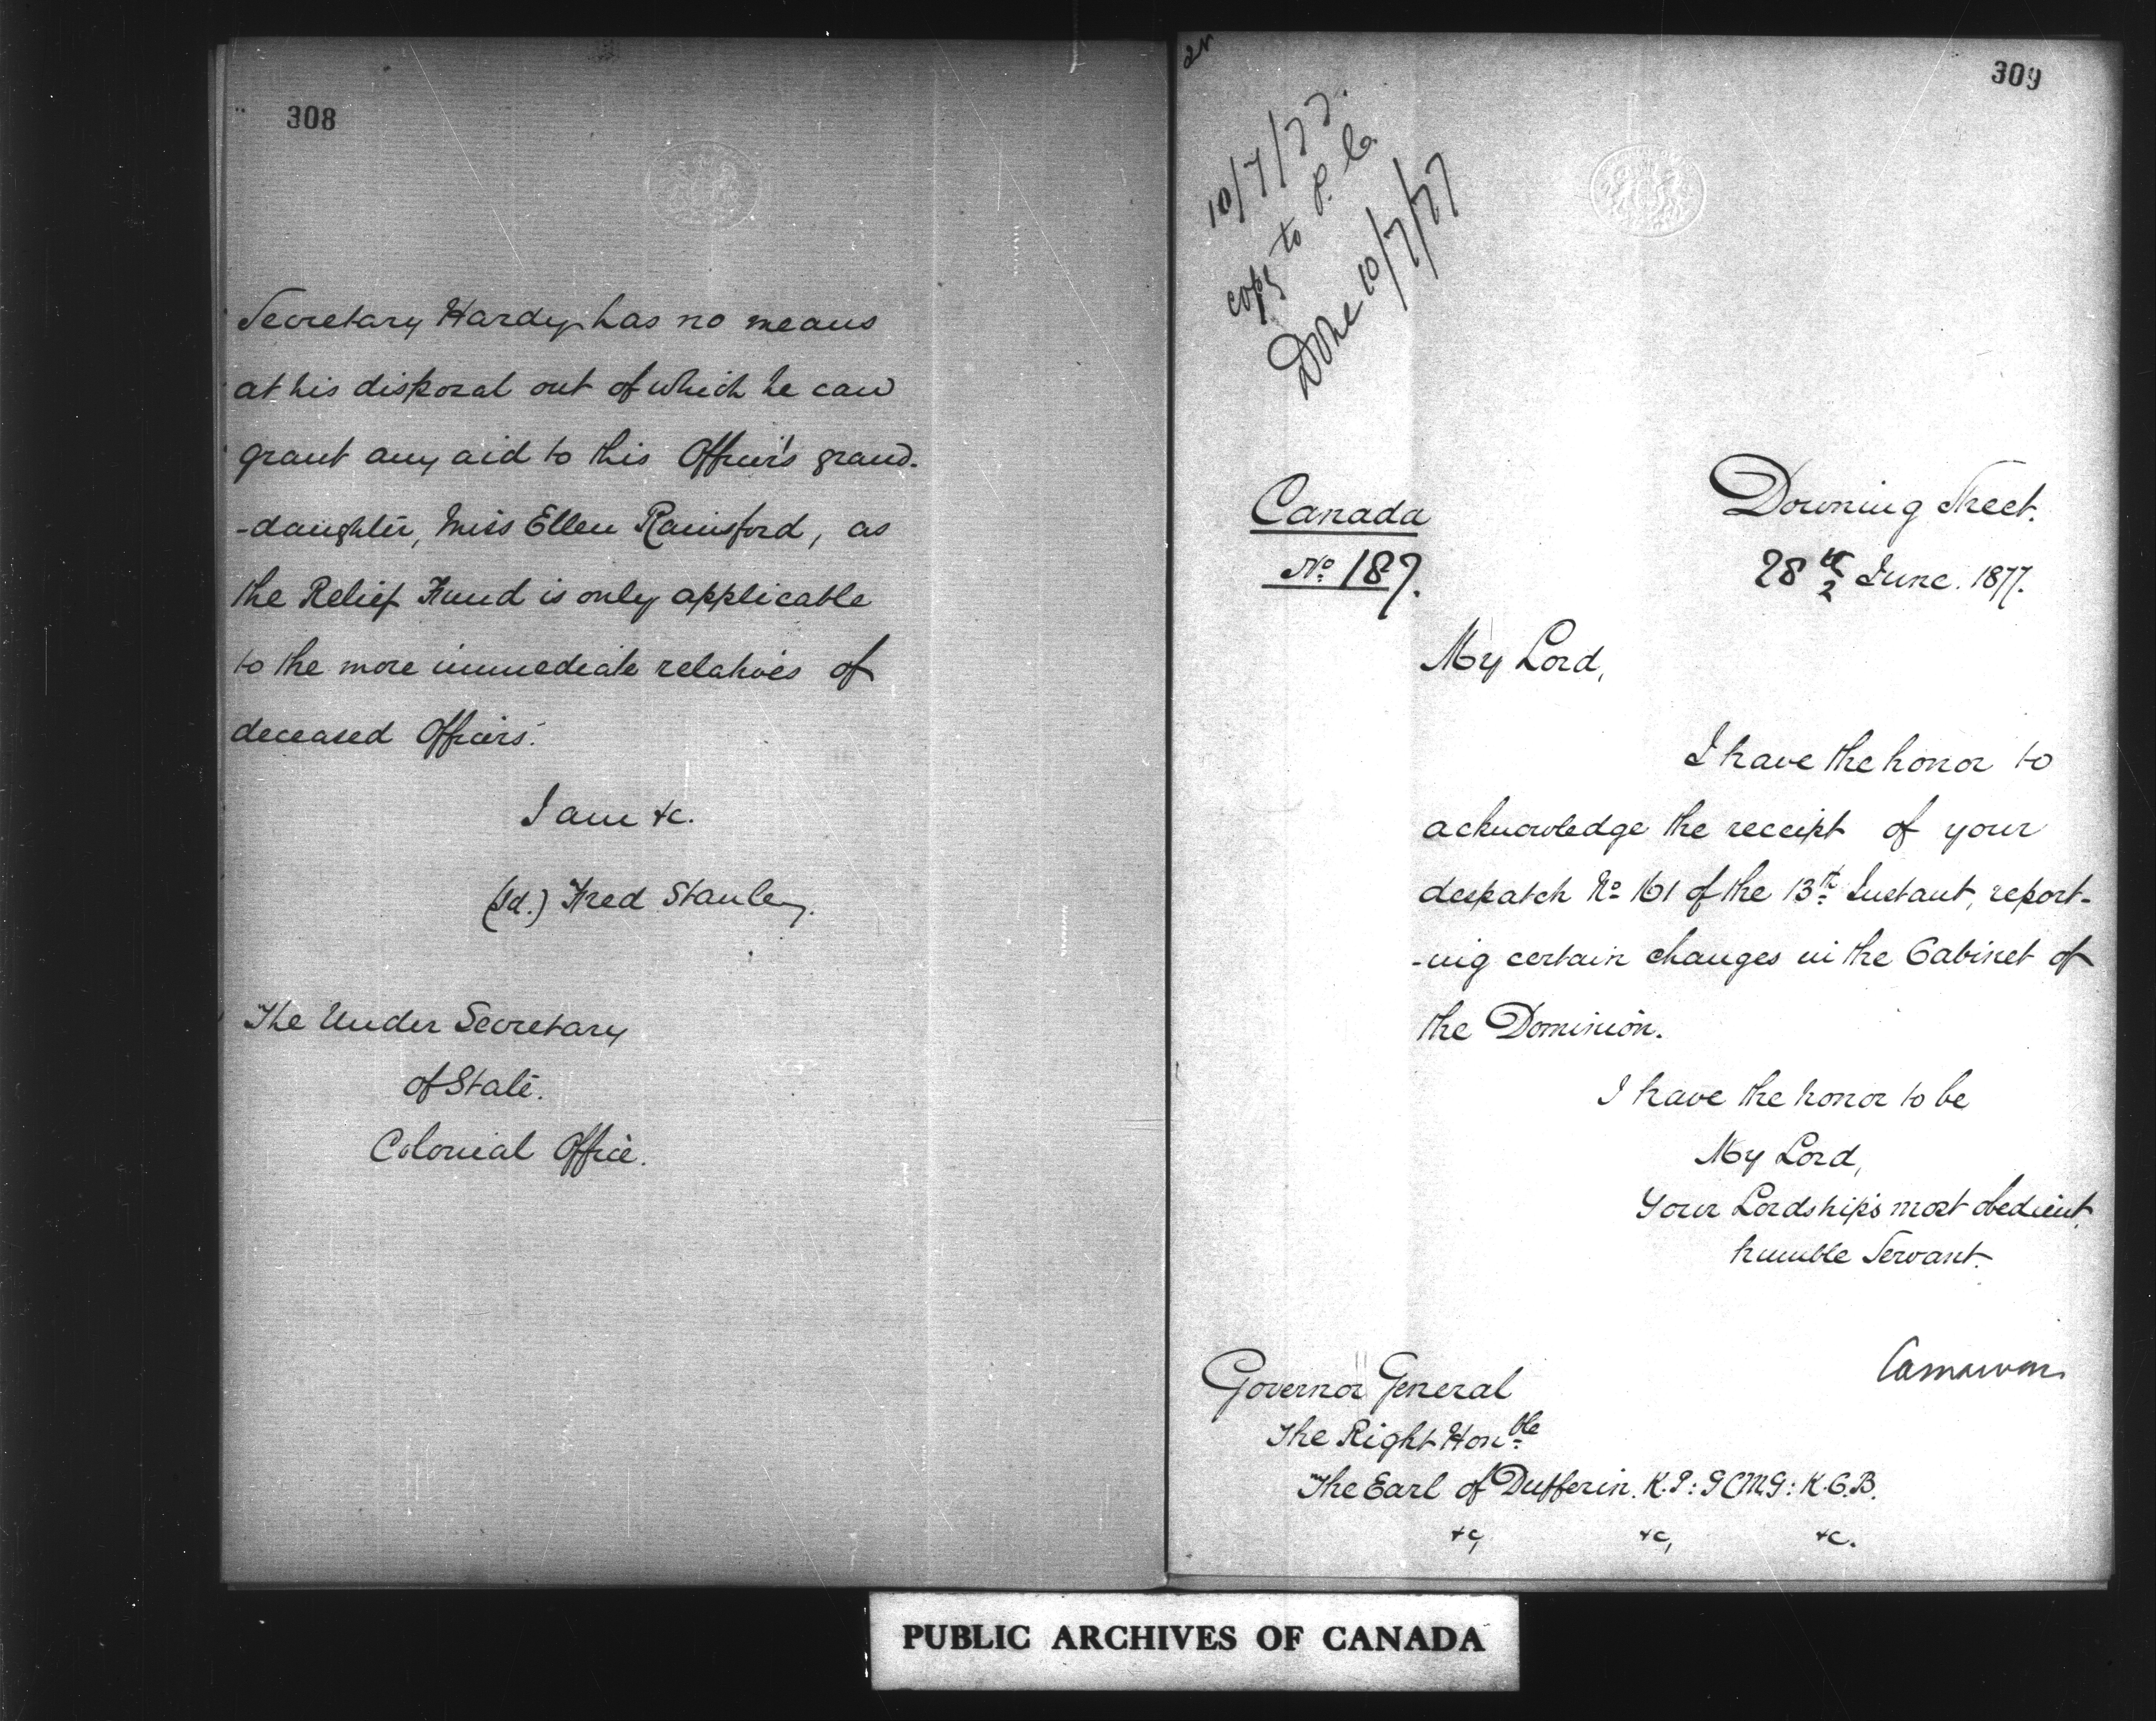 308
Secretary Hardy has no means
at his disposal out of which he can
grant any aid to this Officer's grand-
-daughter, Miss Ellen Rainsford, as
the Relief Fund is only applicable
to the more immediate relatives of
deceased Officers.
I am &c.
(Sd.) Fred Stanley.
The Under Secretary
of State.
Colonial Office.
309
10/7/77.
copy to P. Co
Done 10/7/77
Canada
No. 187.
Downing Street.
28th June. 1877.
My Lord,
I have the honor to
acknowledge the receipt of your
despatch No 161 of the 13th Instant, report-
-ing certain changes in the Cabinet of
the Dominion.
I have the honor to be
My Lord,
Your Lordship's most obedient
humble Servant.
Carnarvon
Governor General
The Right Honble
The Earl of Dufferin. K.P: GCMG: K.C.B.
&c, &c, &c.
PUBLIC ARCHIVES OF CANADA